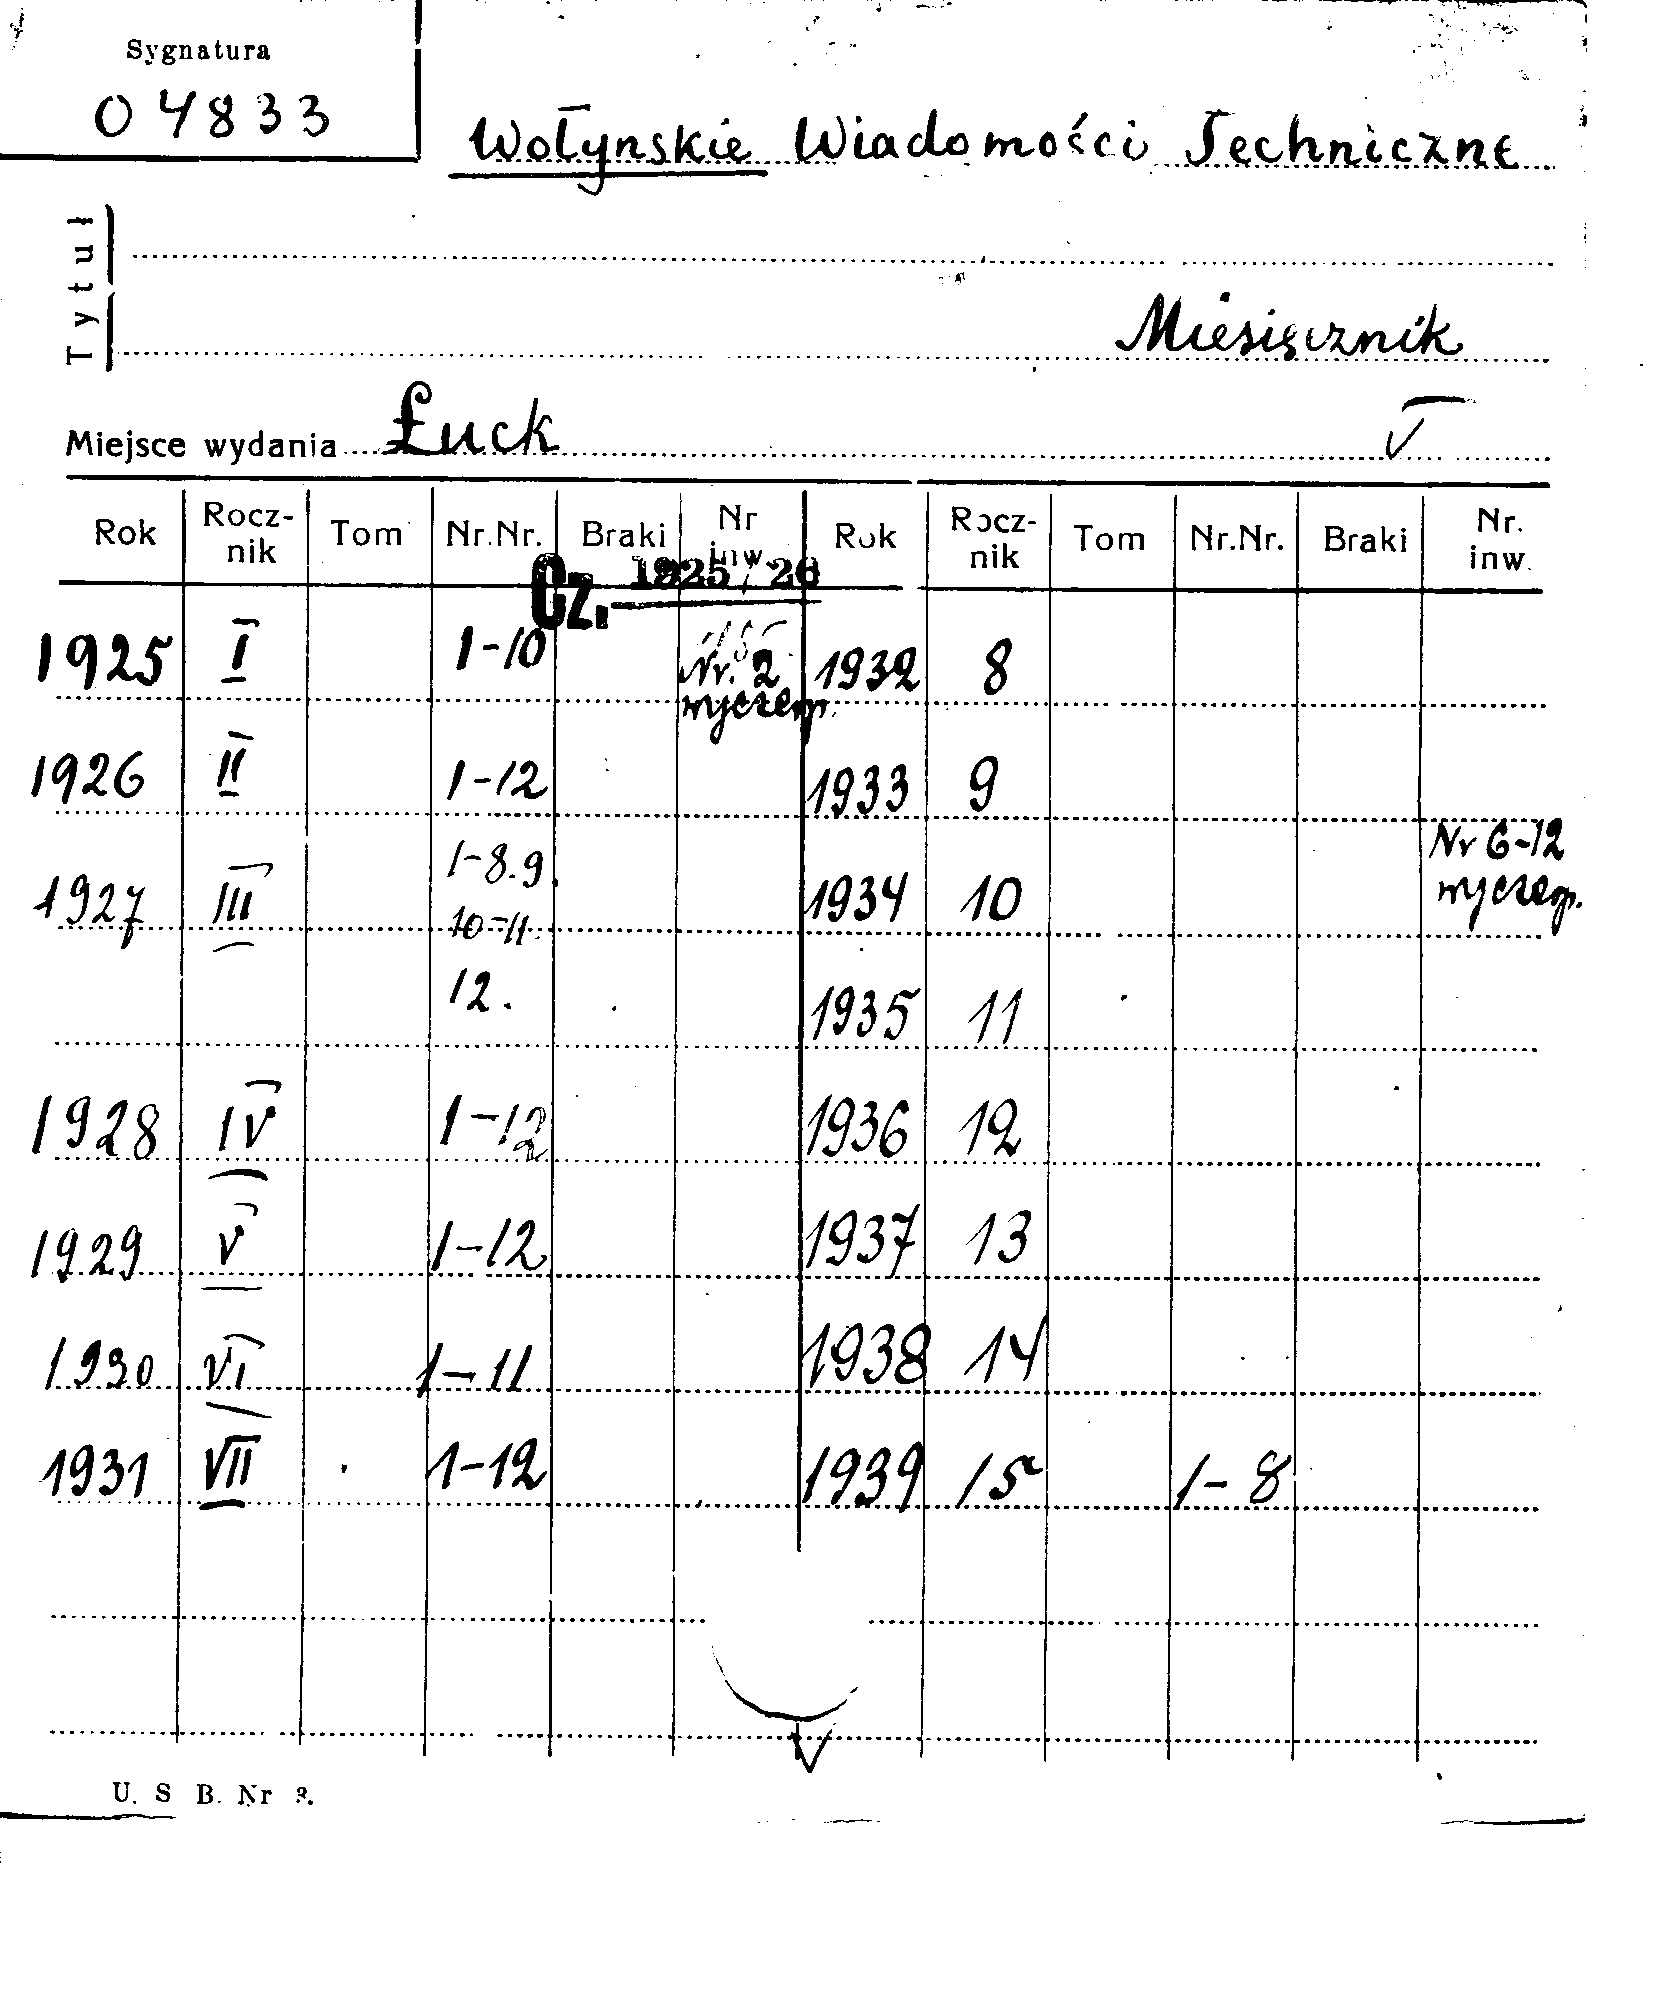 Sygnatura
04833
Wołynskie Wiadomości Techniczne
Tytuł
Miesięcznik
Miejsce wydania Łuck
V
Rok Rocz-nik Tom Nr.Nr. Braki Nr inw. Rok Rocz-nik Tom Nr.Nr. Braki Nr. inw.
Cz. 1925/26
1925 I 1-10 Nr. 2 wyczerp. 1932 8
1926 II 1-12 1933 9
1927 III 1-8.9 10-11. 1934 10 Nr 6-12 wyczerp.
12. 1935 11
1928 IV 1-12 1936 12
1929 V 1-12 1937 13
1930 VI 1-11 1938 14
1931 VII 1-12 1939 15 1-8
U. S B. Nr